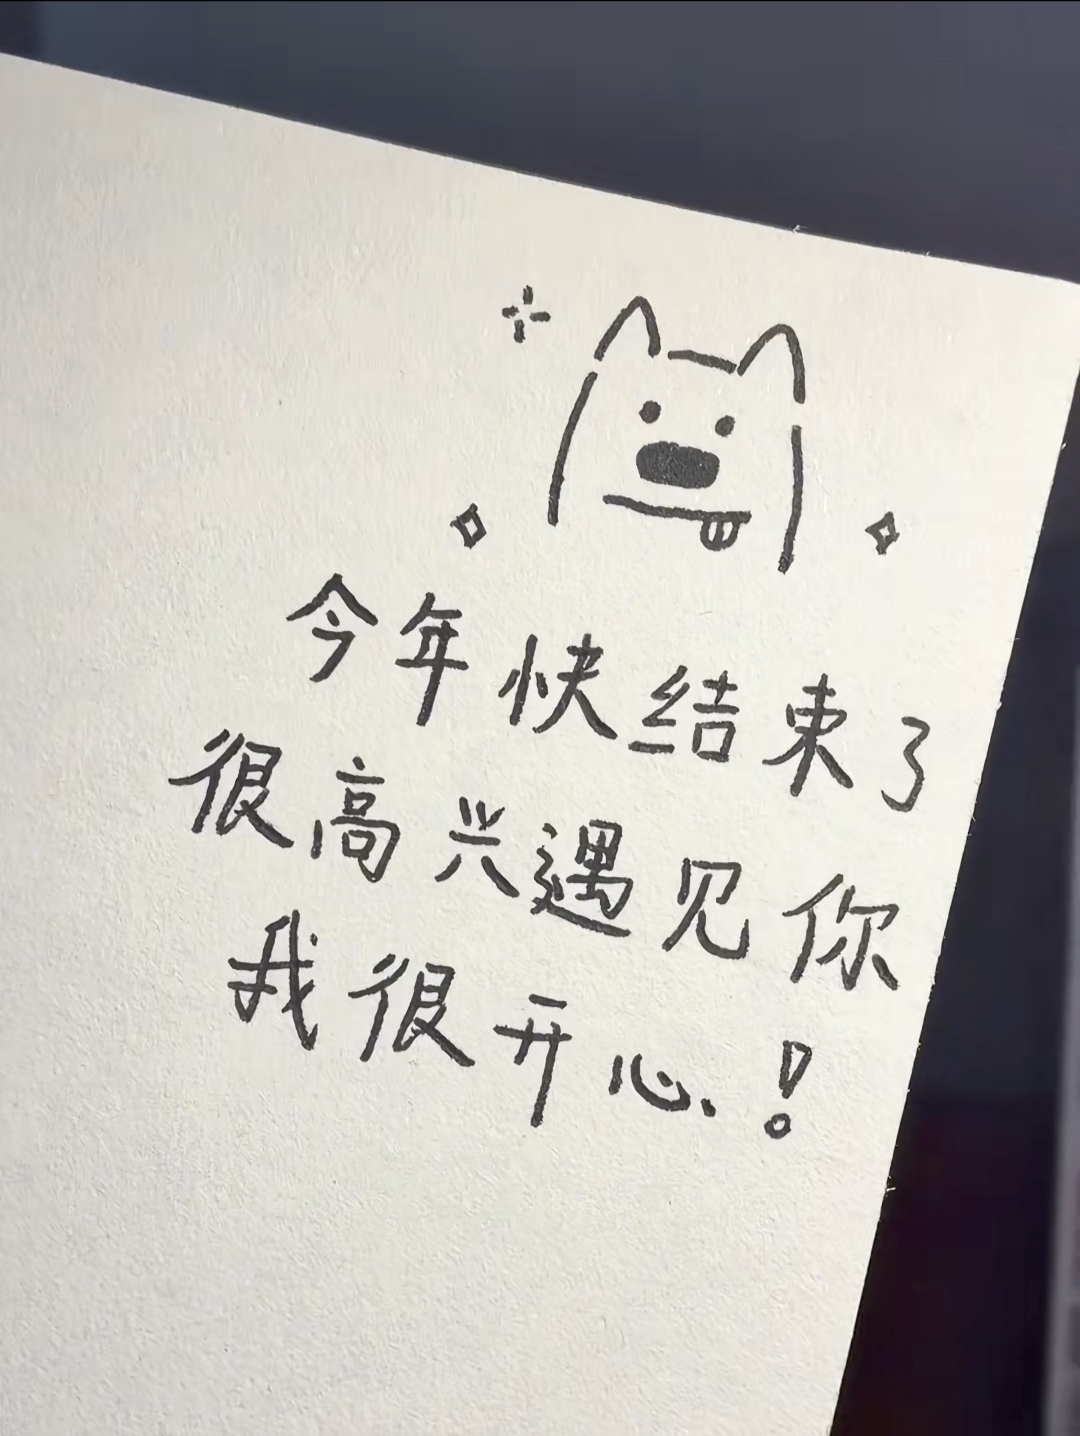 今年快结束了
很高兴遇见你
我很开心!